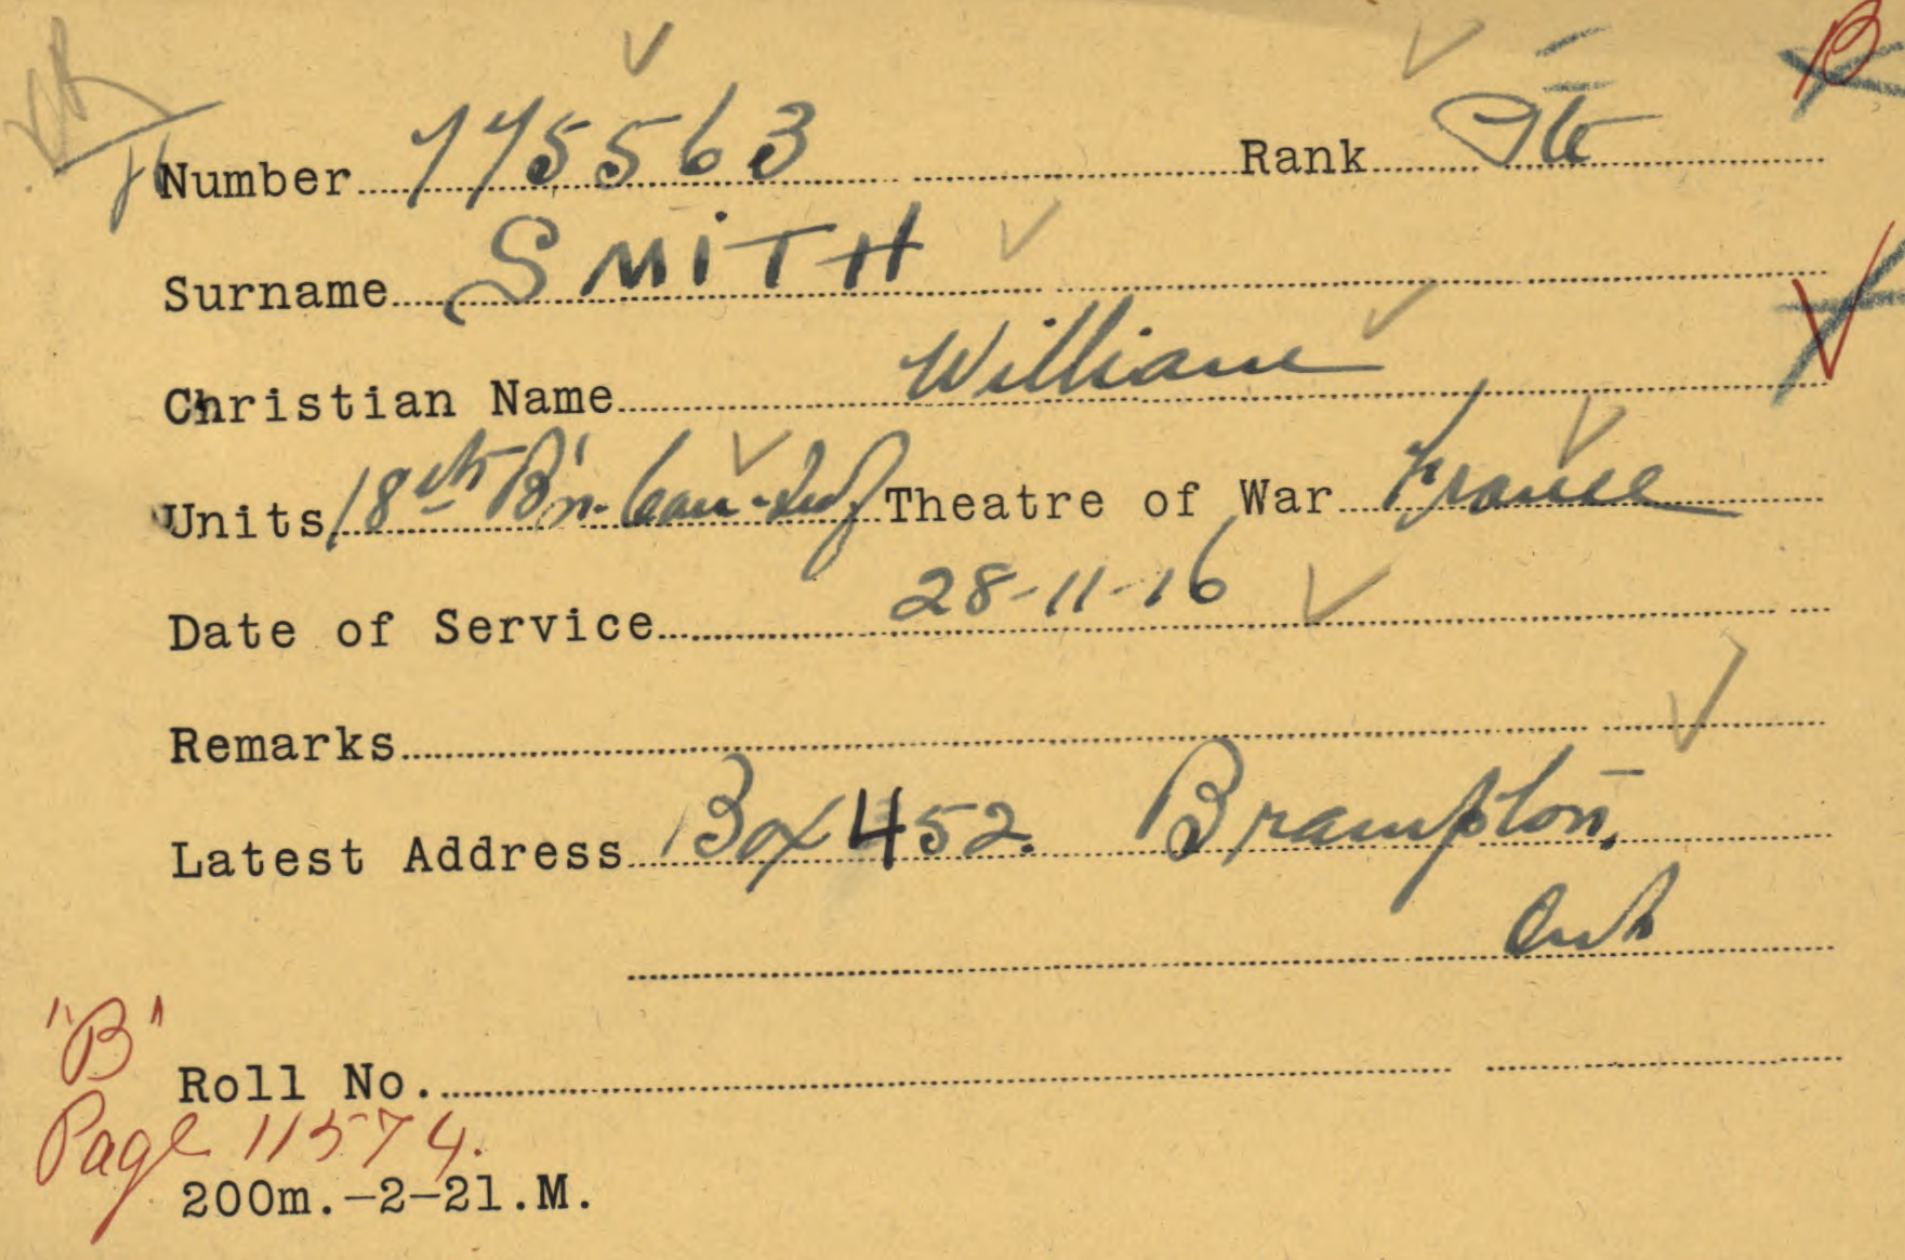 Number 775563 Rank Pte
Surname SMiTH
Christian Name William
Units 18th B'n. Can. Inf Theatre of War France
Date of Service 28-11-16
Remarks
Latest Address Box 452. Brampton,
Ont
"B"
Roll No.
Page 11574.
200m.-2-21.M.
B